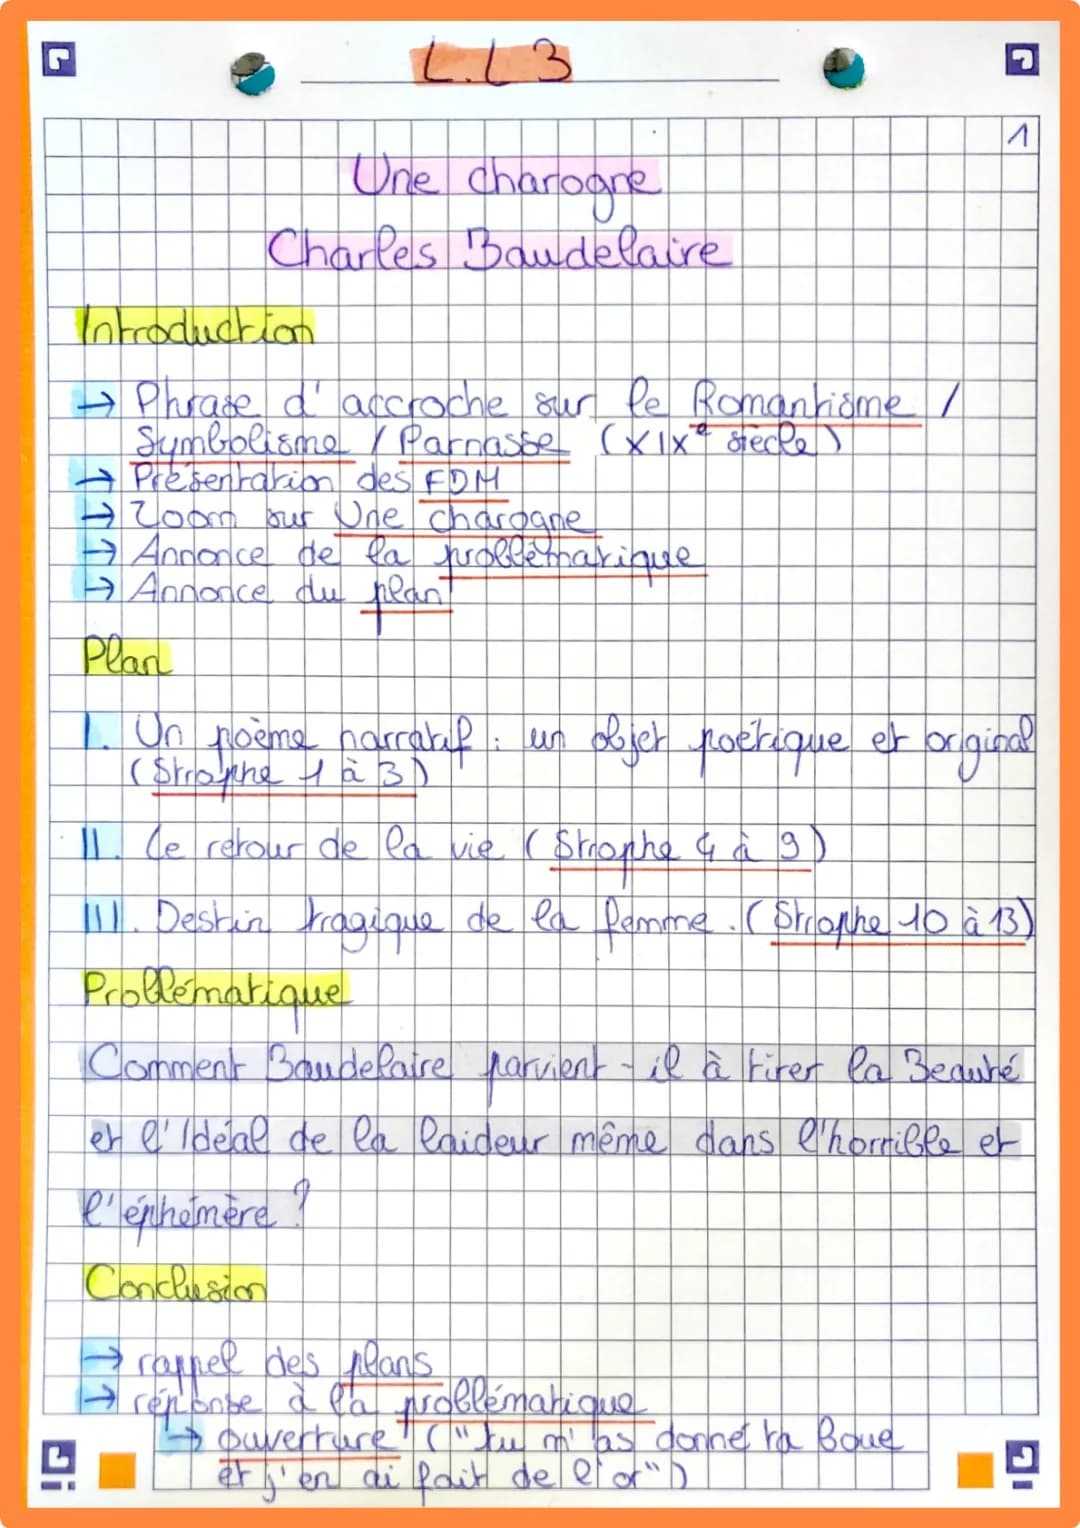 L.L 3
1
Une charogne
Charles Baudelaire
Introduction
→ Phrase d'accroche sur le Romantisme /
Symbolisme / Parnasse (XIXe siècle)
→ Présentation des FDM
→ Zoom sur Une charogne
→ Annonce de la problématique
→ Annonce du plan
Plan
I. Un poème narratif : un objet poétique et original
(Strophe 1 à 3)
II. Le retour de la vie (Strophe 4 à 9)
III. Destin tragique de la femme. (Strophe 10 à 13)
Problématique
Comment Baudelaire parvient-il à tirer la Beauté
et l'Idéal de la laideur même dans l'horrible et
l'éphémère ?
Conclusion
→ rappel des plans
→ réponse à la problématique
→ ouverture ("Tu m'as donné ta boue
et j'en ai fait de l'or")